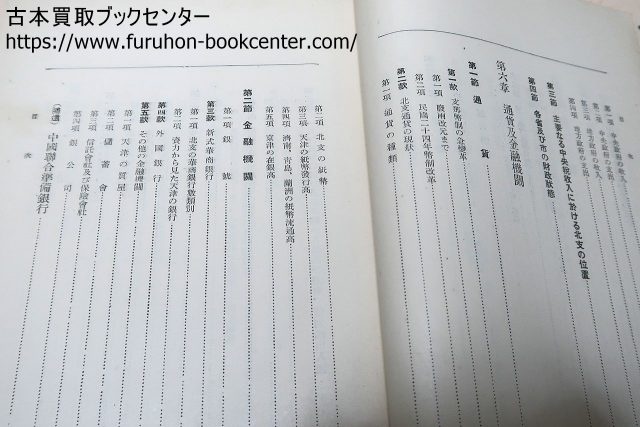 古本買取ブックセンター
https://www.furuhon-bookcenter.com/
目次
第一項 中央政府の收入
第二項 中央政府の支出
第一項 地方政府の收入
第二項 地方政府の支出
第三節 主要なる中央税收入に於ける北支の位置
第四節 各省及び市の財政狀態
第六章 通貨及金融機關
第一節 通貨
第一款 支那幣制の急變革
第一項 廢兩改元まで
第二項 民國二十四年幣制改革
第二款 北支通貨の現狀
第一項 通貨の種類
第二項 北支の紙幣
第三項 天津の紙幣發行高
第四項 濟南、青島、蘭洲の紙幣流通高
第五項 京津の在銀高
第二節 金融機關
第一項 銀號
第三款 新式華商銀行
第一項 北支の華商銀行數類別
第二項 資力から見た天津の銀行
第四款 外國銀行
第五款 その他の金融機關
第一項 天津の質屋
第二項 儲蓄會
第三項 信託會社及び保險會社
第四項 銀公司
(補遺) 中國聯合準備銀行
目次